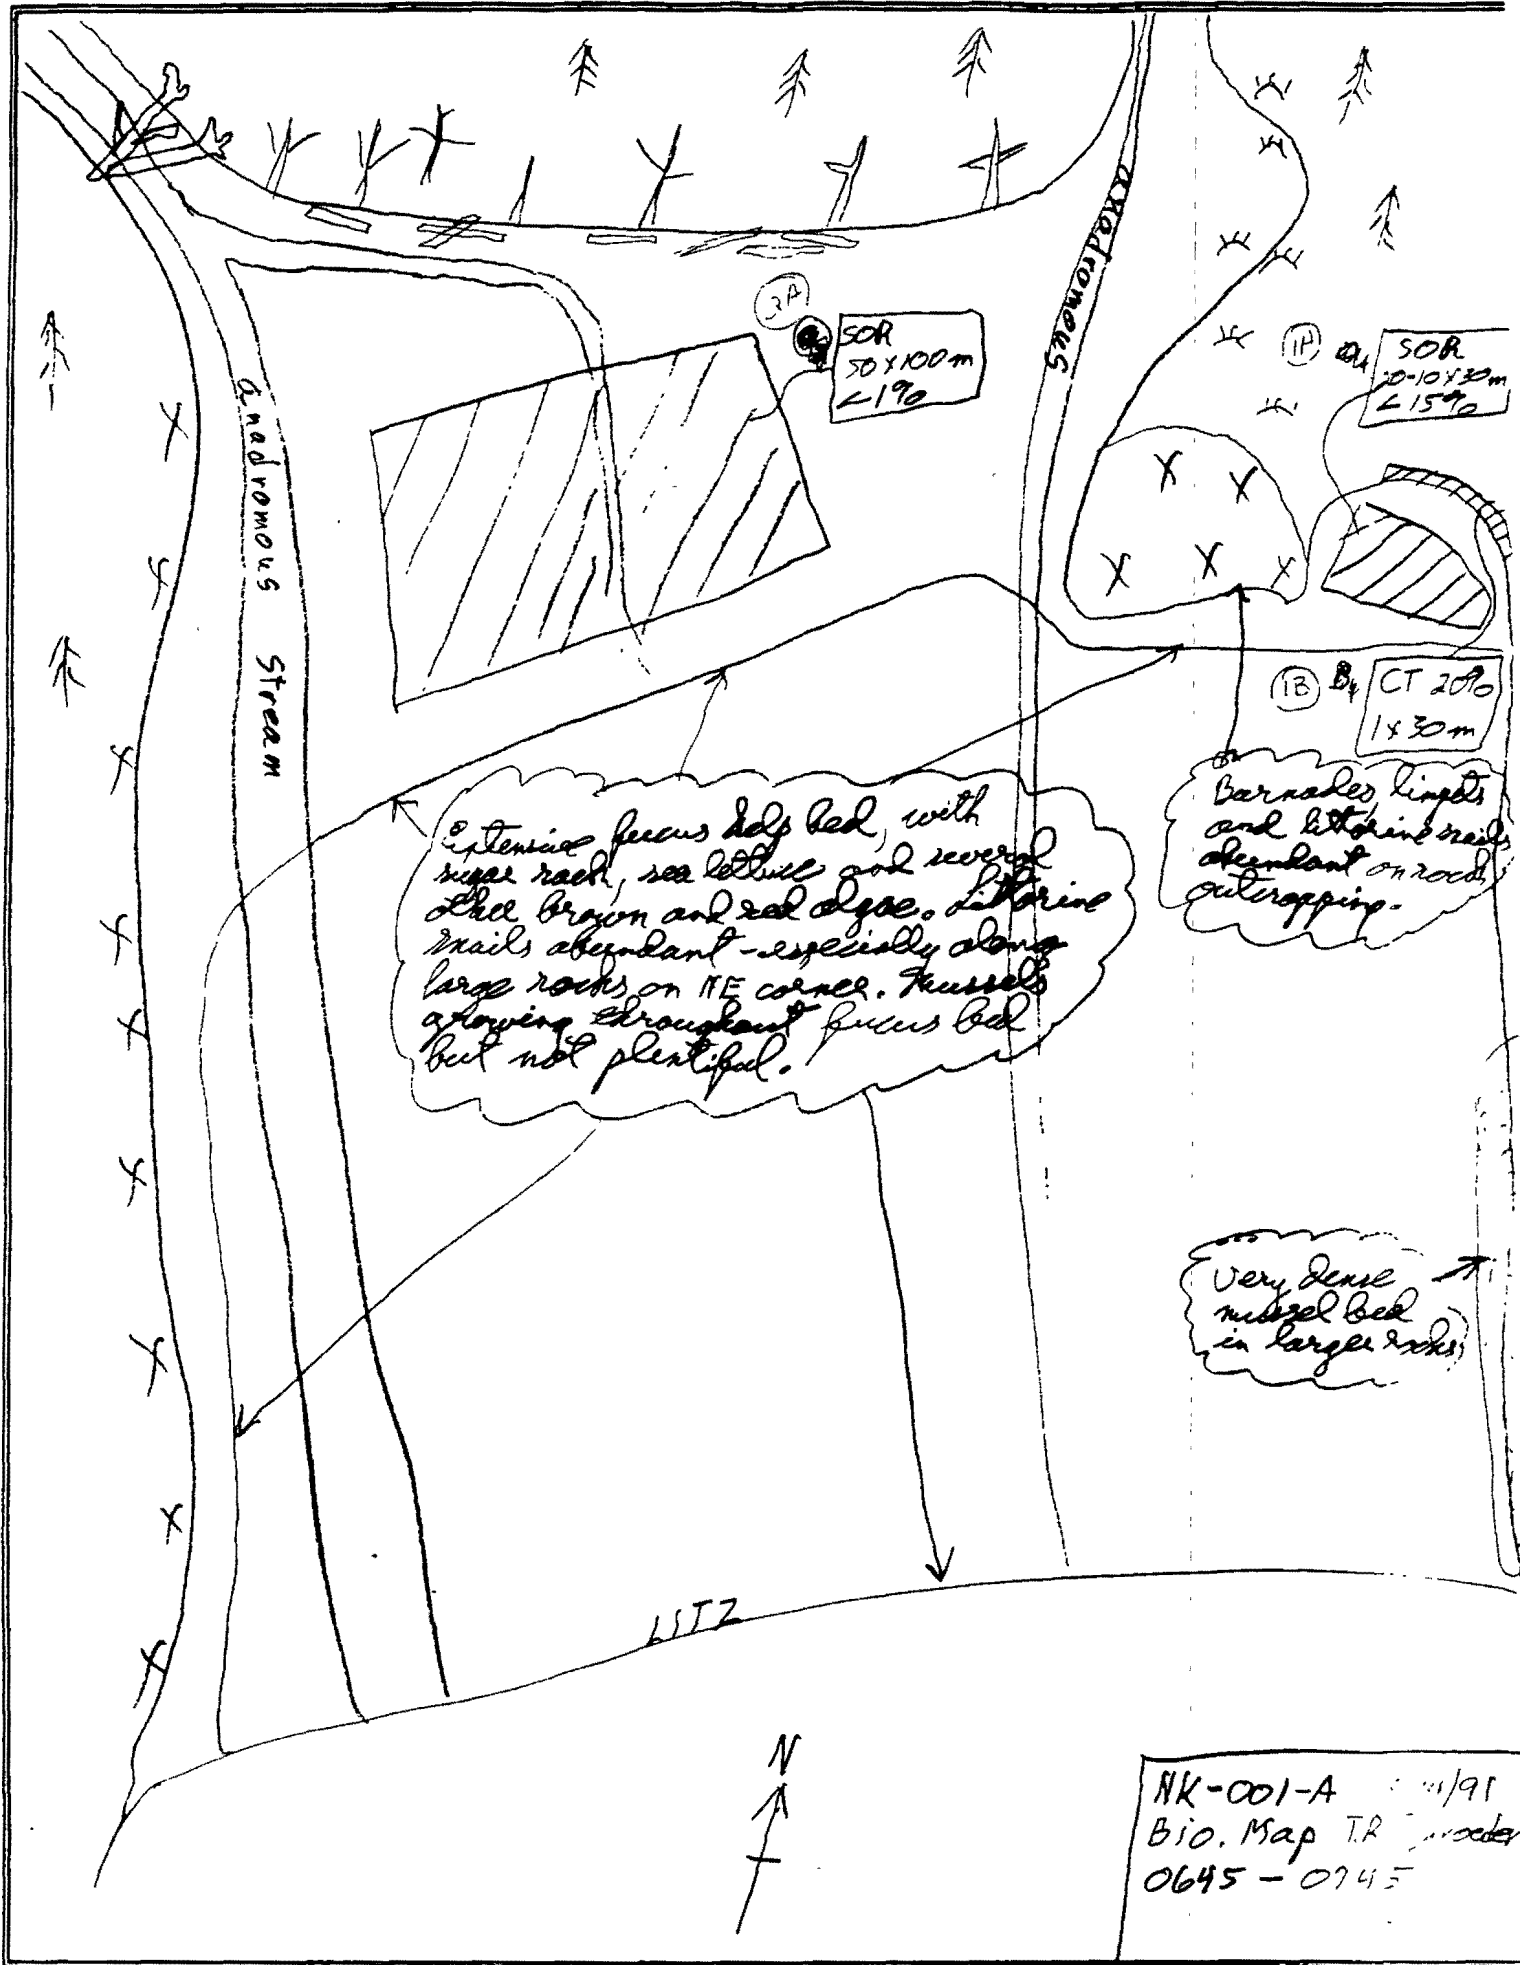 anadromous
3A
SOR
50 x 100 m
<1%
1A
SOR
<15%
anadromous
Stream
1B
CT 20%
1 x 30 m
Extensive fucus kelp bed, with
sugar rack, sea lettuce and several
other brown and red algae. Littorine
snails abundant - especially along
large rocks on NE corner. Mussels
growing throughout fucus bed
but not plentiful.
Barnacles, limpets
and littorine snails
abundant on rock
outcropping.
Very dense
mussel bed
in larger rocks
LITZ
N
NK-001-A /91
Bio. Map T.R
0645 - 0745